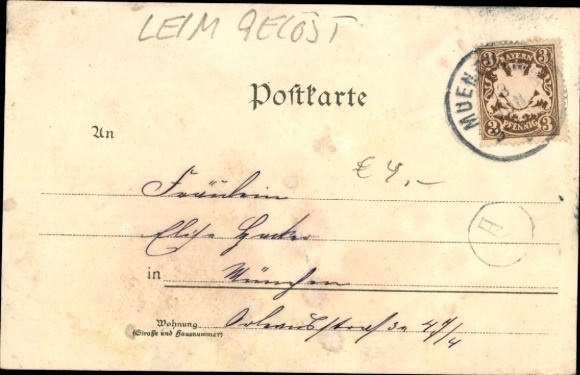 LEIM GELÖST
3 BAYERN 3
3 PFENNIG 3
MUEN
Postkarte
An
€ 4,-
Fräulein
Elise
H
in München
Wohnung
(Straße und Hausnummer)
Orleansstraße